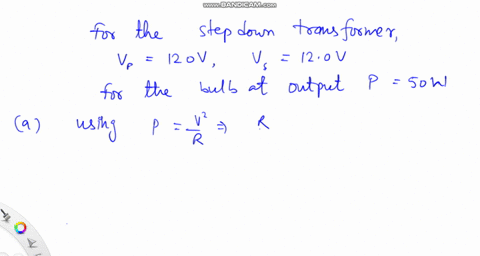 WWW.BANDICAM.COM
For the stepdown transformer,
V_P = 120V, V_s = 12.0V
for the bulb at output P = 50W
(a) using P = V²/R ⇒ R